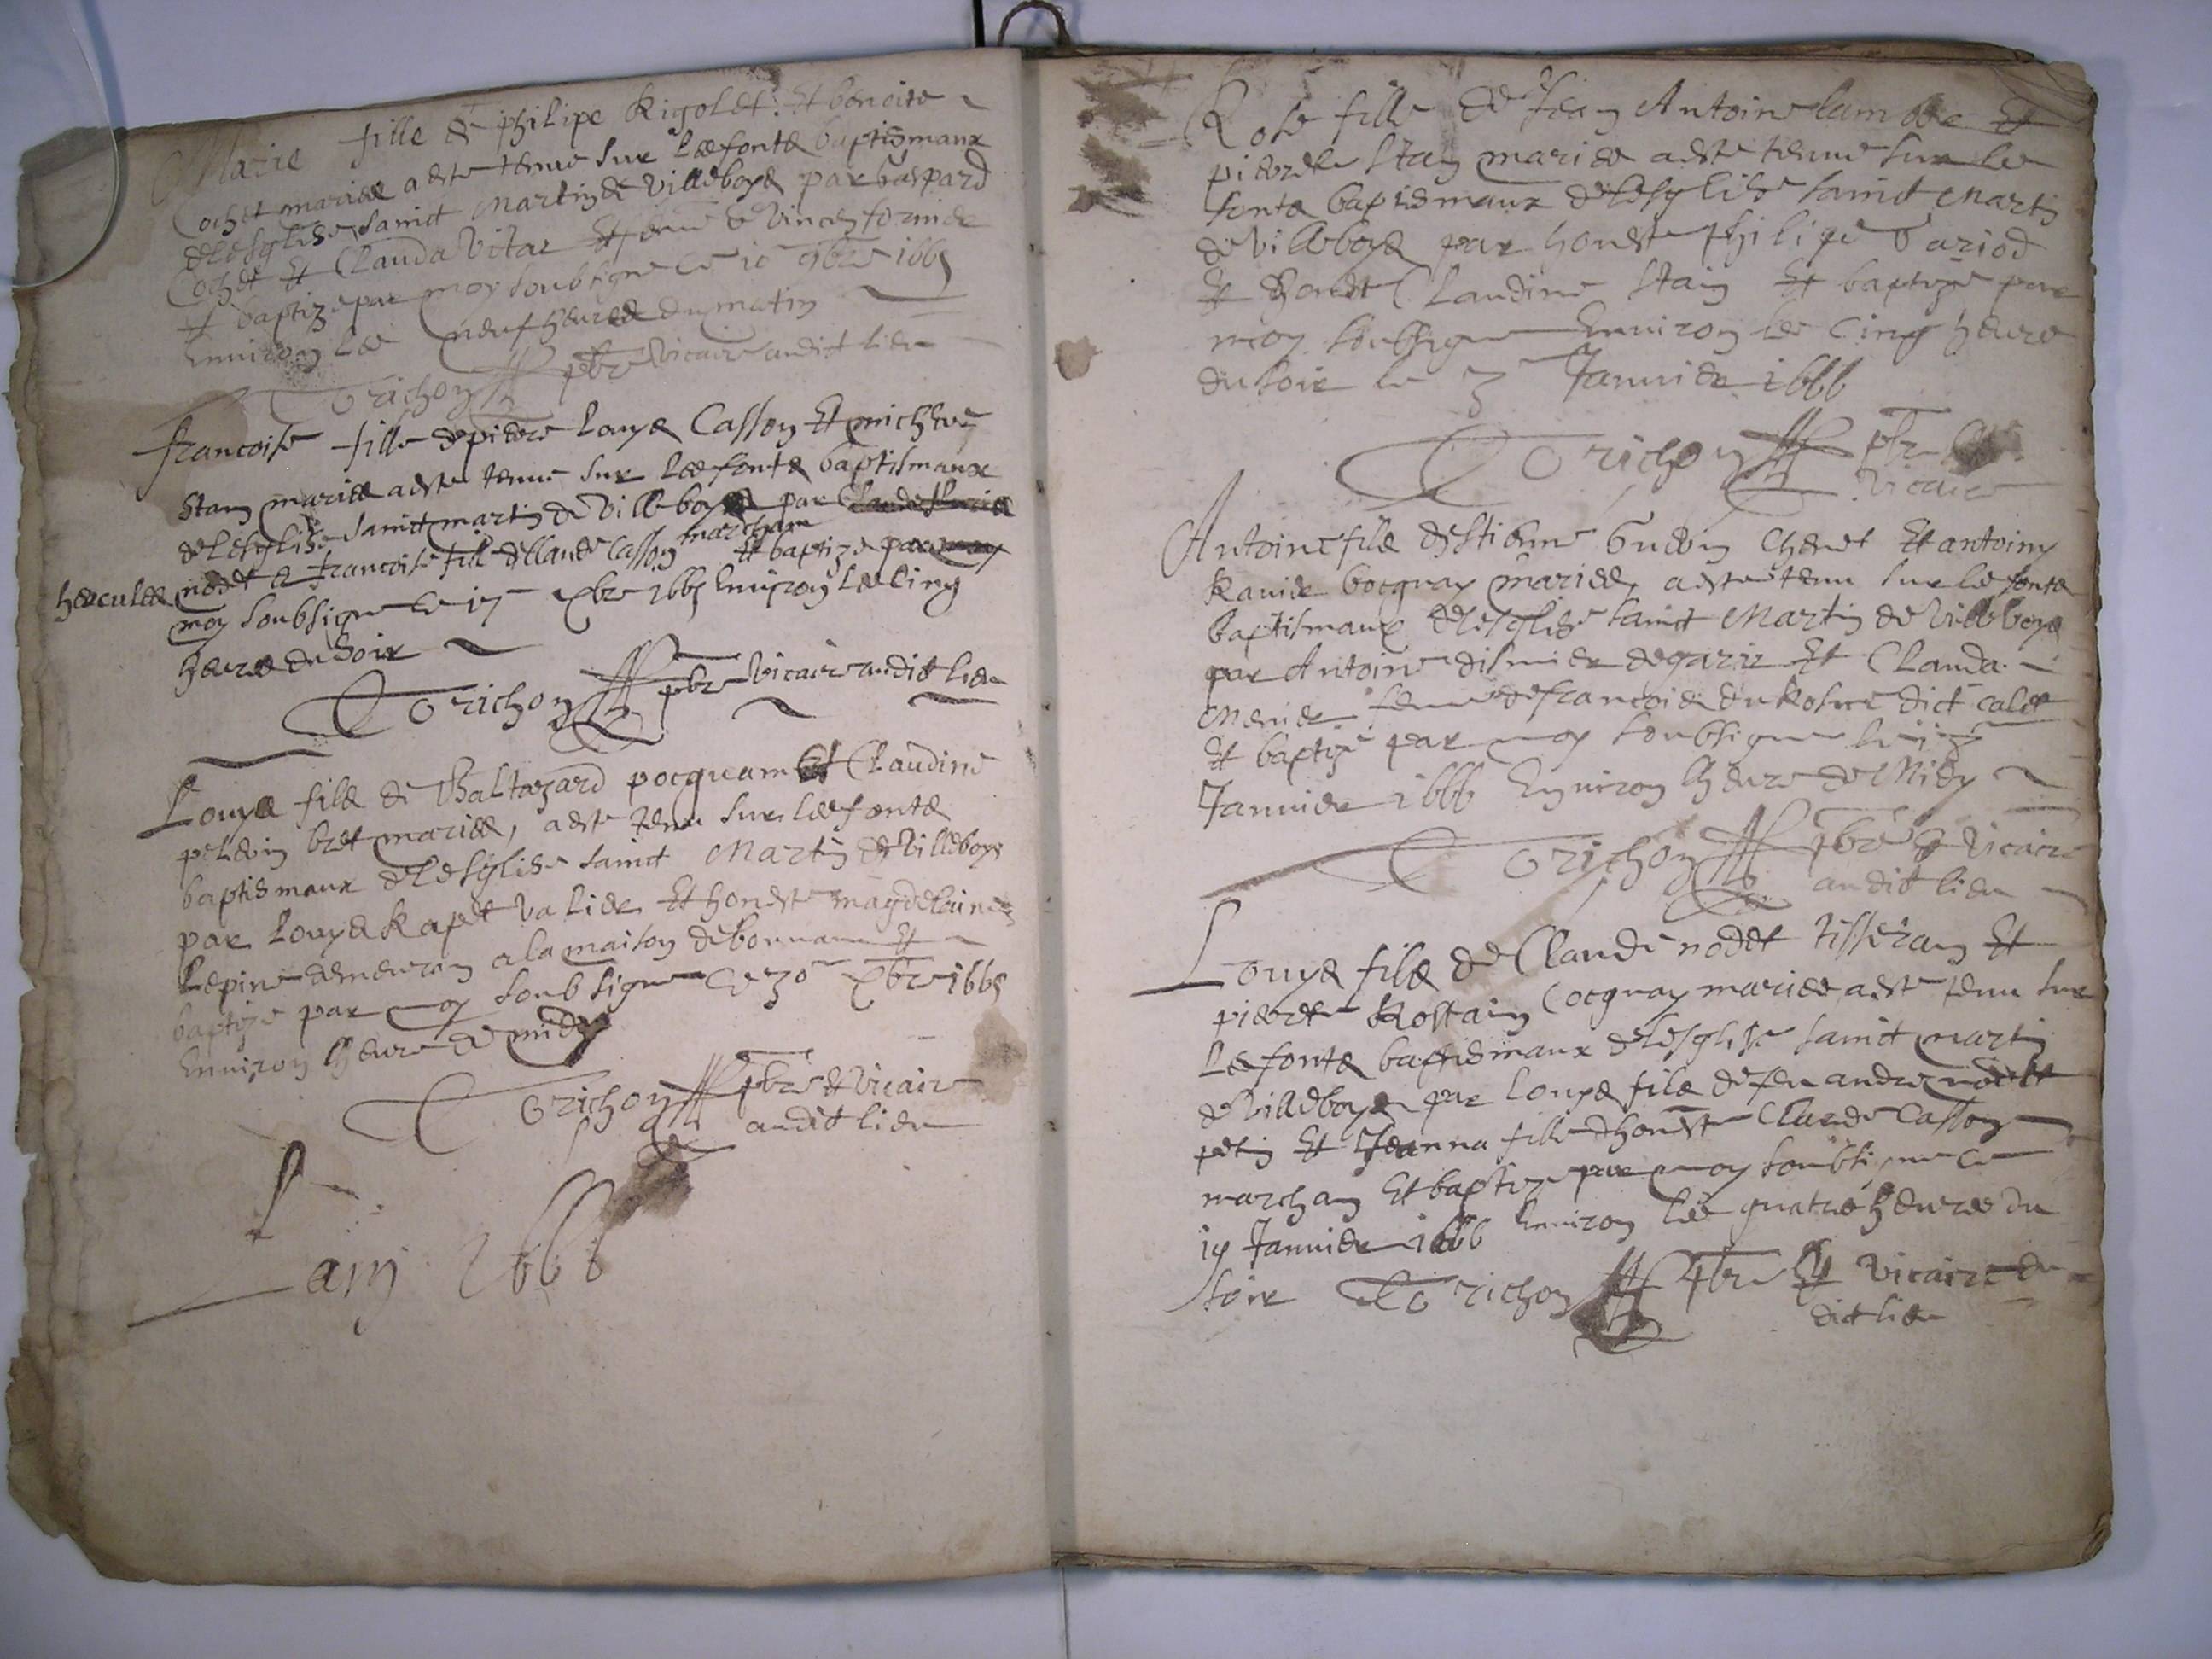 Marie fille de philipe Rigolet Et benoite
Cochet mariee a este tenue sur les fonts baptismaux
de lesglise sainct Martin de Villeboys par Gaspard
Cochet Et Clauda Vitar femme de Vincen fornier
Et baptize par moy soubsigne ce 10 9bre 1665
Environ les neuf heures du matin
Torichon pbre Vicaire audict lieu
francoise fille de pierre Louys Casson Et micher
Stain maries a este tenue sur les fonts baptismaux
de lesglise sainct martin de Villeboys par
hercules nodet & francoise fille de Claude Casson marchant Et baptize par moy
moy soubsigne ce 17 xbre 1665 Environ les cinq
heures du soir
Torichon pbre Vicaire audict lieu
Louys fils de Baltazard pocquam Et Claudine
pelevin bret maries, a este tenu sur les fonts
baptismaux de lesglise sainct Martin de Villeboys
par Louys Rapet Valier Et honeste magdeleine
Lepine demeuran a la maison de bonnam Et
baptize par moy soubsigne ce 30 xbre 1665
Environ lheure de midy
Torichon pbre & Vicaire
audict lieu
Lan 1666
Rose fille de Jean Antoine lambert Et
pierrete Stain maries a este tenue sur les
fonts baptismaux de lesglise sainct Martin
de Villeboys par honeste philipe Variod
Et honeste Claudine Stain Et baptize par
moy soubsigne Environ les cinq heures
du soir le 3 Janvier 1666
Torichon pbre &
Vicaire
Antoine fils destienne Guerin Chenet Et antoiny
Ravier bocquay maries, a este tenu sur les fonts
baptismaux de lesglise sainct Martin de Villeboys
par Antoine dismier Et Clauda
Merier femme de francois du Rosne dict calet
Et baptize par moy soubsigne le
Janvier 1666 Environ lheure de Midy
Torichon pbre & Vicaire
audict lieu
Louys fils de Claude nodet tisseran Et
pierrete Rostain Cocquay maries a este tenu sur
Les fonts baptismaux de lesglise sainct martin
de Villeboys par Louys fils de feu andre nodet
petin Et Jeanna fille dhoneste Claude Casson
marchan Et baptize par moy soubsigne ce
Janvier 1666 Environ les quatre heures du
soir Torichon pbre & Vicaire du
dict lieu